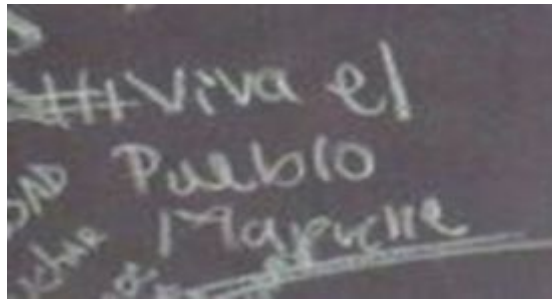 #Viva el
Pueblo
Mapuche